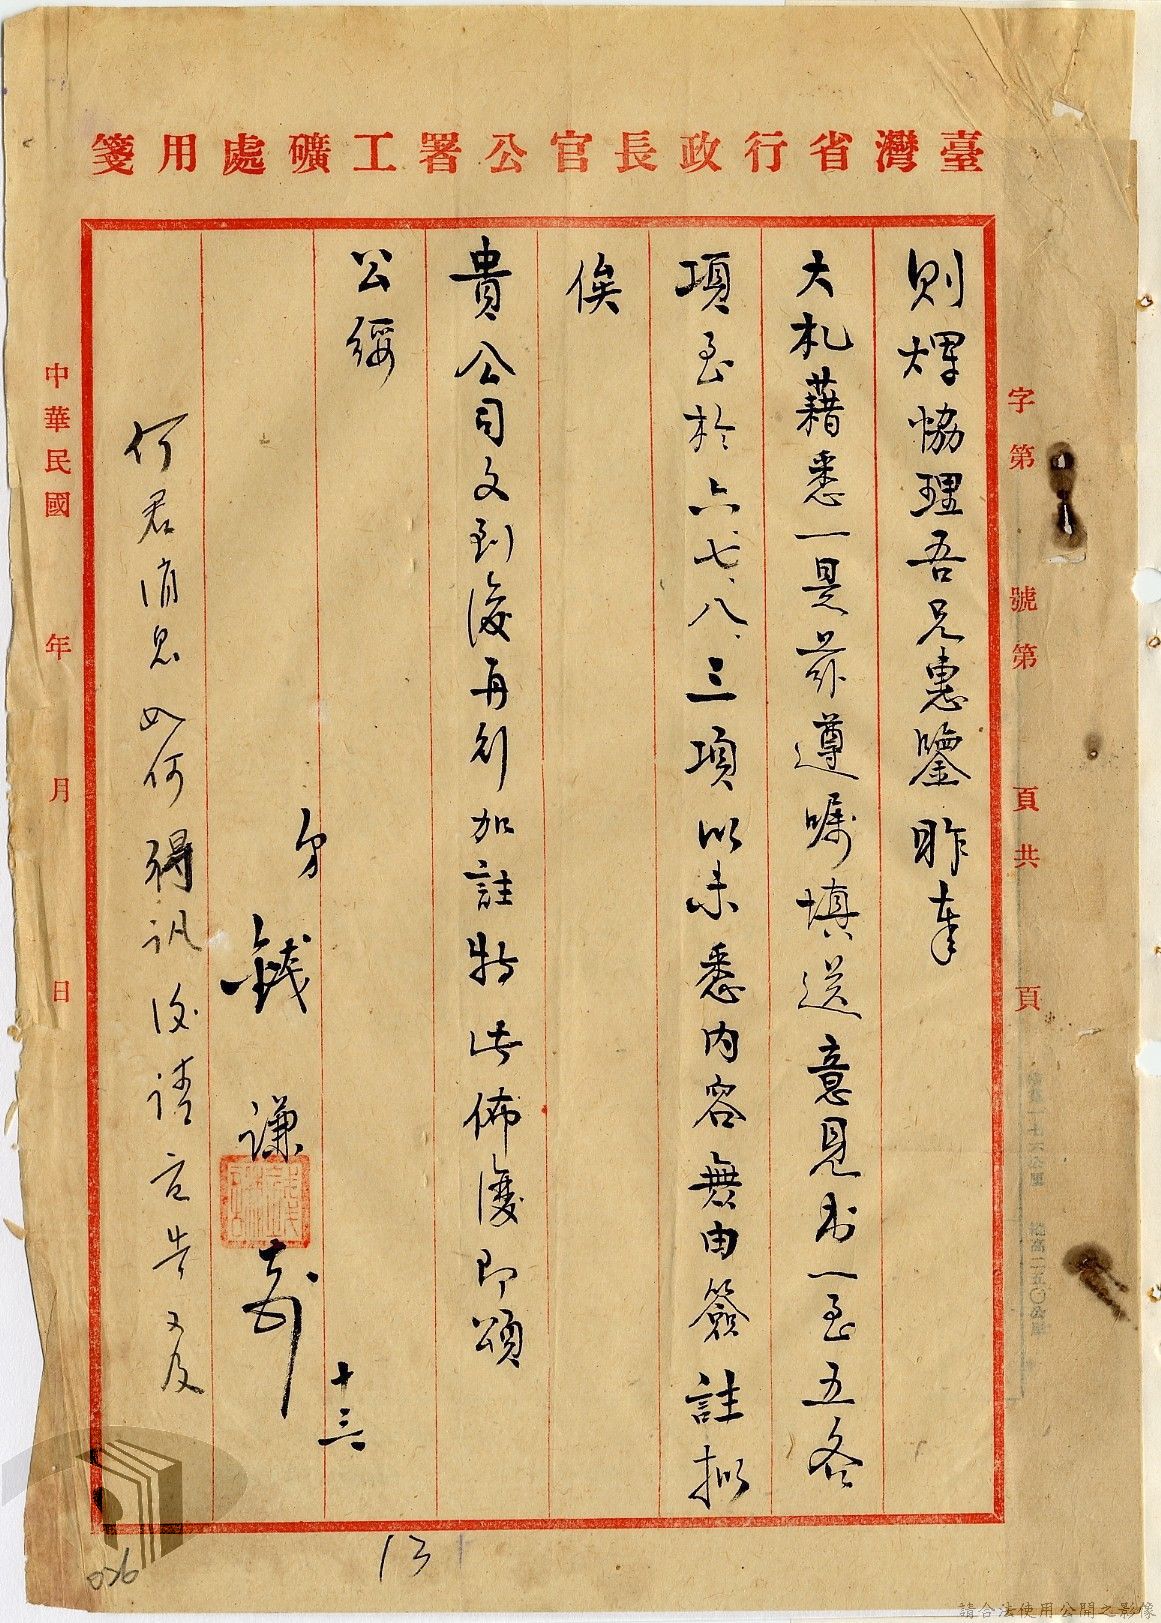 臺灣省行政長官公署工礦處用箋
字第　號第　頁共　頁
則煇協理吾兄惠鑒昨奉
大札藉悉一是茲遵囑填送意見書一至五各
項至於六、七、八、三項以未悉內容無由簽註擬
俟
貴公司文到後再行加註特此佈復即頌
公綏
弟
錢謙
十三
何君消息如何得訊後請言告又及
中華民國　年　月　日
13
026
請合法使用公開之影像